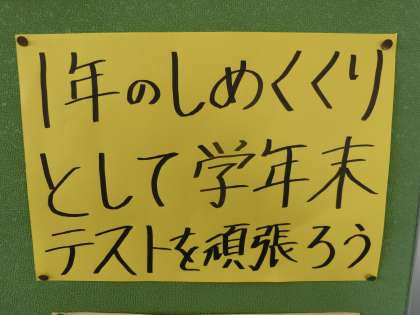 1年のしめくくり
として学年末
テストを頑張ろう